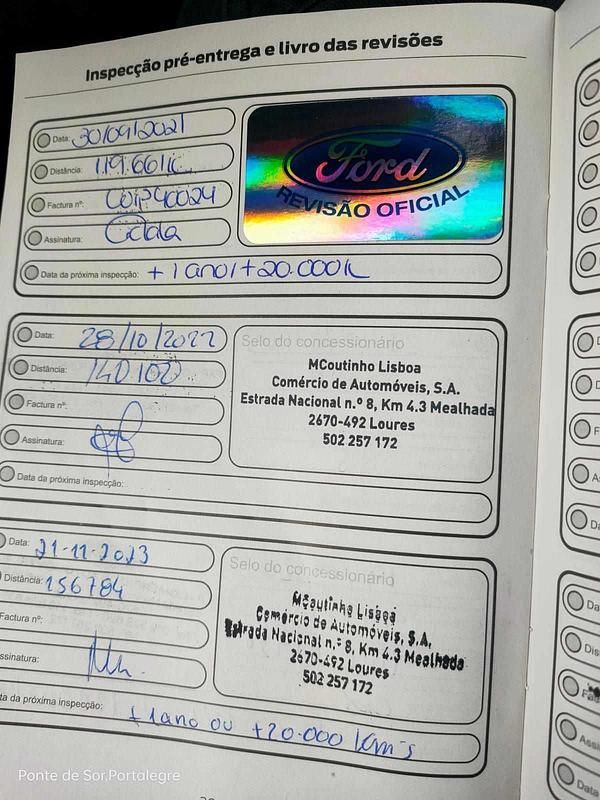 Inspecção pré-entrega e livro das revisões
Data: 30/09/2021
Distância: 119.661K
Factura nº:
Assinatura:
Data da próxima inspecção: +1 ano/+20.000K
Ford
REVISÃO OFICIAL
Data: 28/10/2022
Distância: 140.102
Factura nº:
Assinatura:
Data da próxima inspecção:
Selo do concessionário
MCoutinho Lisboa
Comércio de Automóveis, S.A.
Estrada Nacional n.º 8, Km 4.3 Mealhada
2670-492 Loures
502 257 172
Data: 21-11-2023
Distância: 156784
Factura nº:
ssinatura:
ta da próxima inspecção: +1ano ou +20.000 Km's
Selo do concessionário
MCoutinho Lisboa
Comércio de Automóveis, S.A.
Estrada Nacional n.º 8, Km 4.3 Mealhada
2670-492 Loures
502 257 172
Ponte de Sor,Portalegre